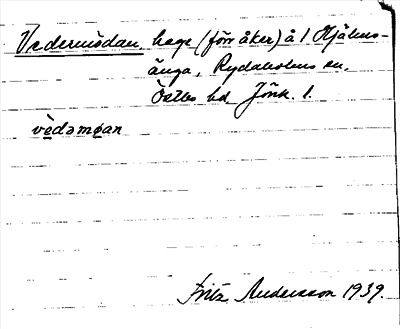 Vedermödan, hage (förr åker) å 1 Hjälms-
änga, Rydaholms sn,
Östbo hd Jönk. l.
vèdəmø̀an
Fritz Andersson 1939.